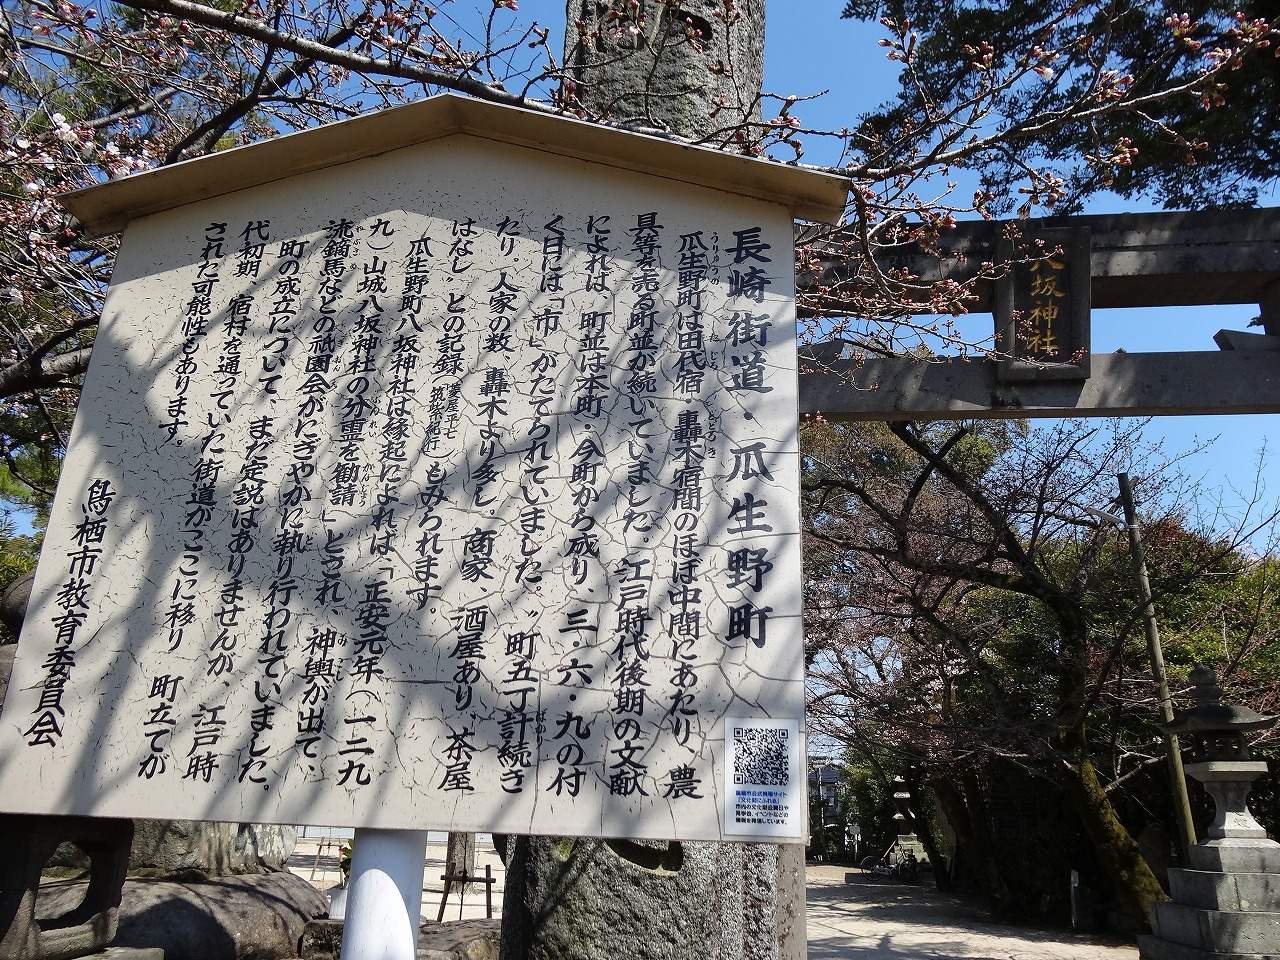 長崎街道・瓜生野町
瓜生野町は田代宿・轟木宿間のほぼ中間にあたり、農
具等を売る町並が続いていました。江戸時代後期の文献
によれば、町並は本町・今町から成り、三・六・九の付
く日には「市」がたてられていました。〝町五丁計続き
たり、人家の数、轟木より多し。商家、酒屋あり、茶屋
はなし〟との記録(菱屋平七 筑紫紀行)もみられます。
瓜生野町八坂神社は縁起によれば「正安元年(一二九
九)山城八坂神社の分霊を勧請」とされ、神輿が出て、
流鏑馬などの祇園会がにぎやかに執り行われていました。
町の成立について、まだ定説はありませんが、江戸時
代初期、宿村を通っていた街道がここに移り、町立てが
された可能性もあります。
鳥栖市教育委員会
八坂神社
鳥栖市公式情報サイト
「文化財にふれる」
市内の文化財公開日や
見学会、イベントなどの
情報を発信しています。